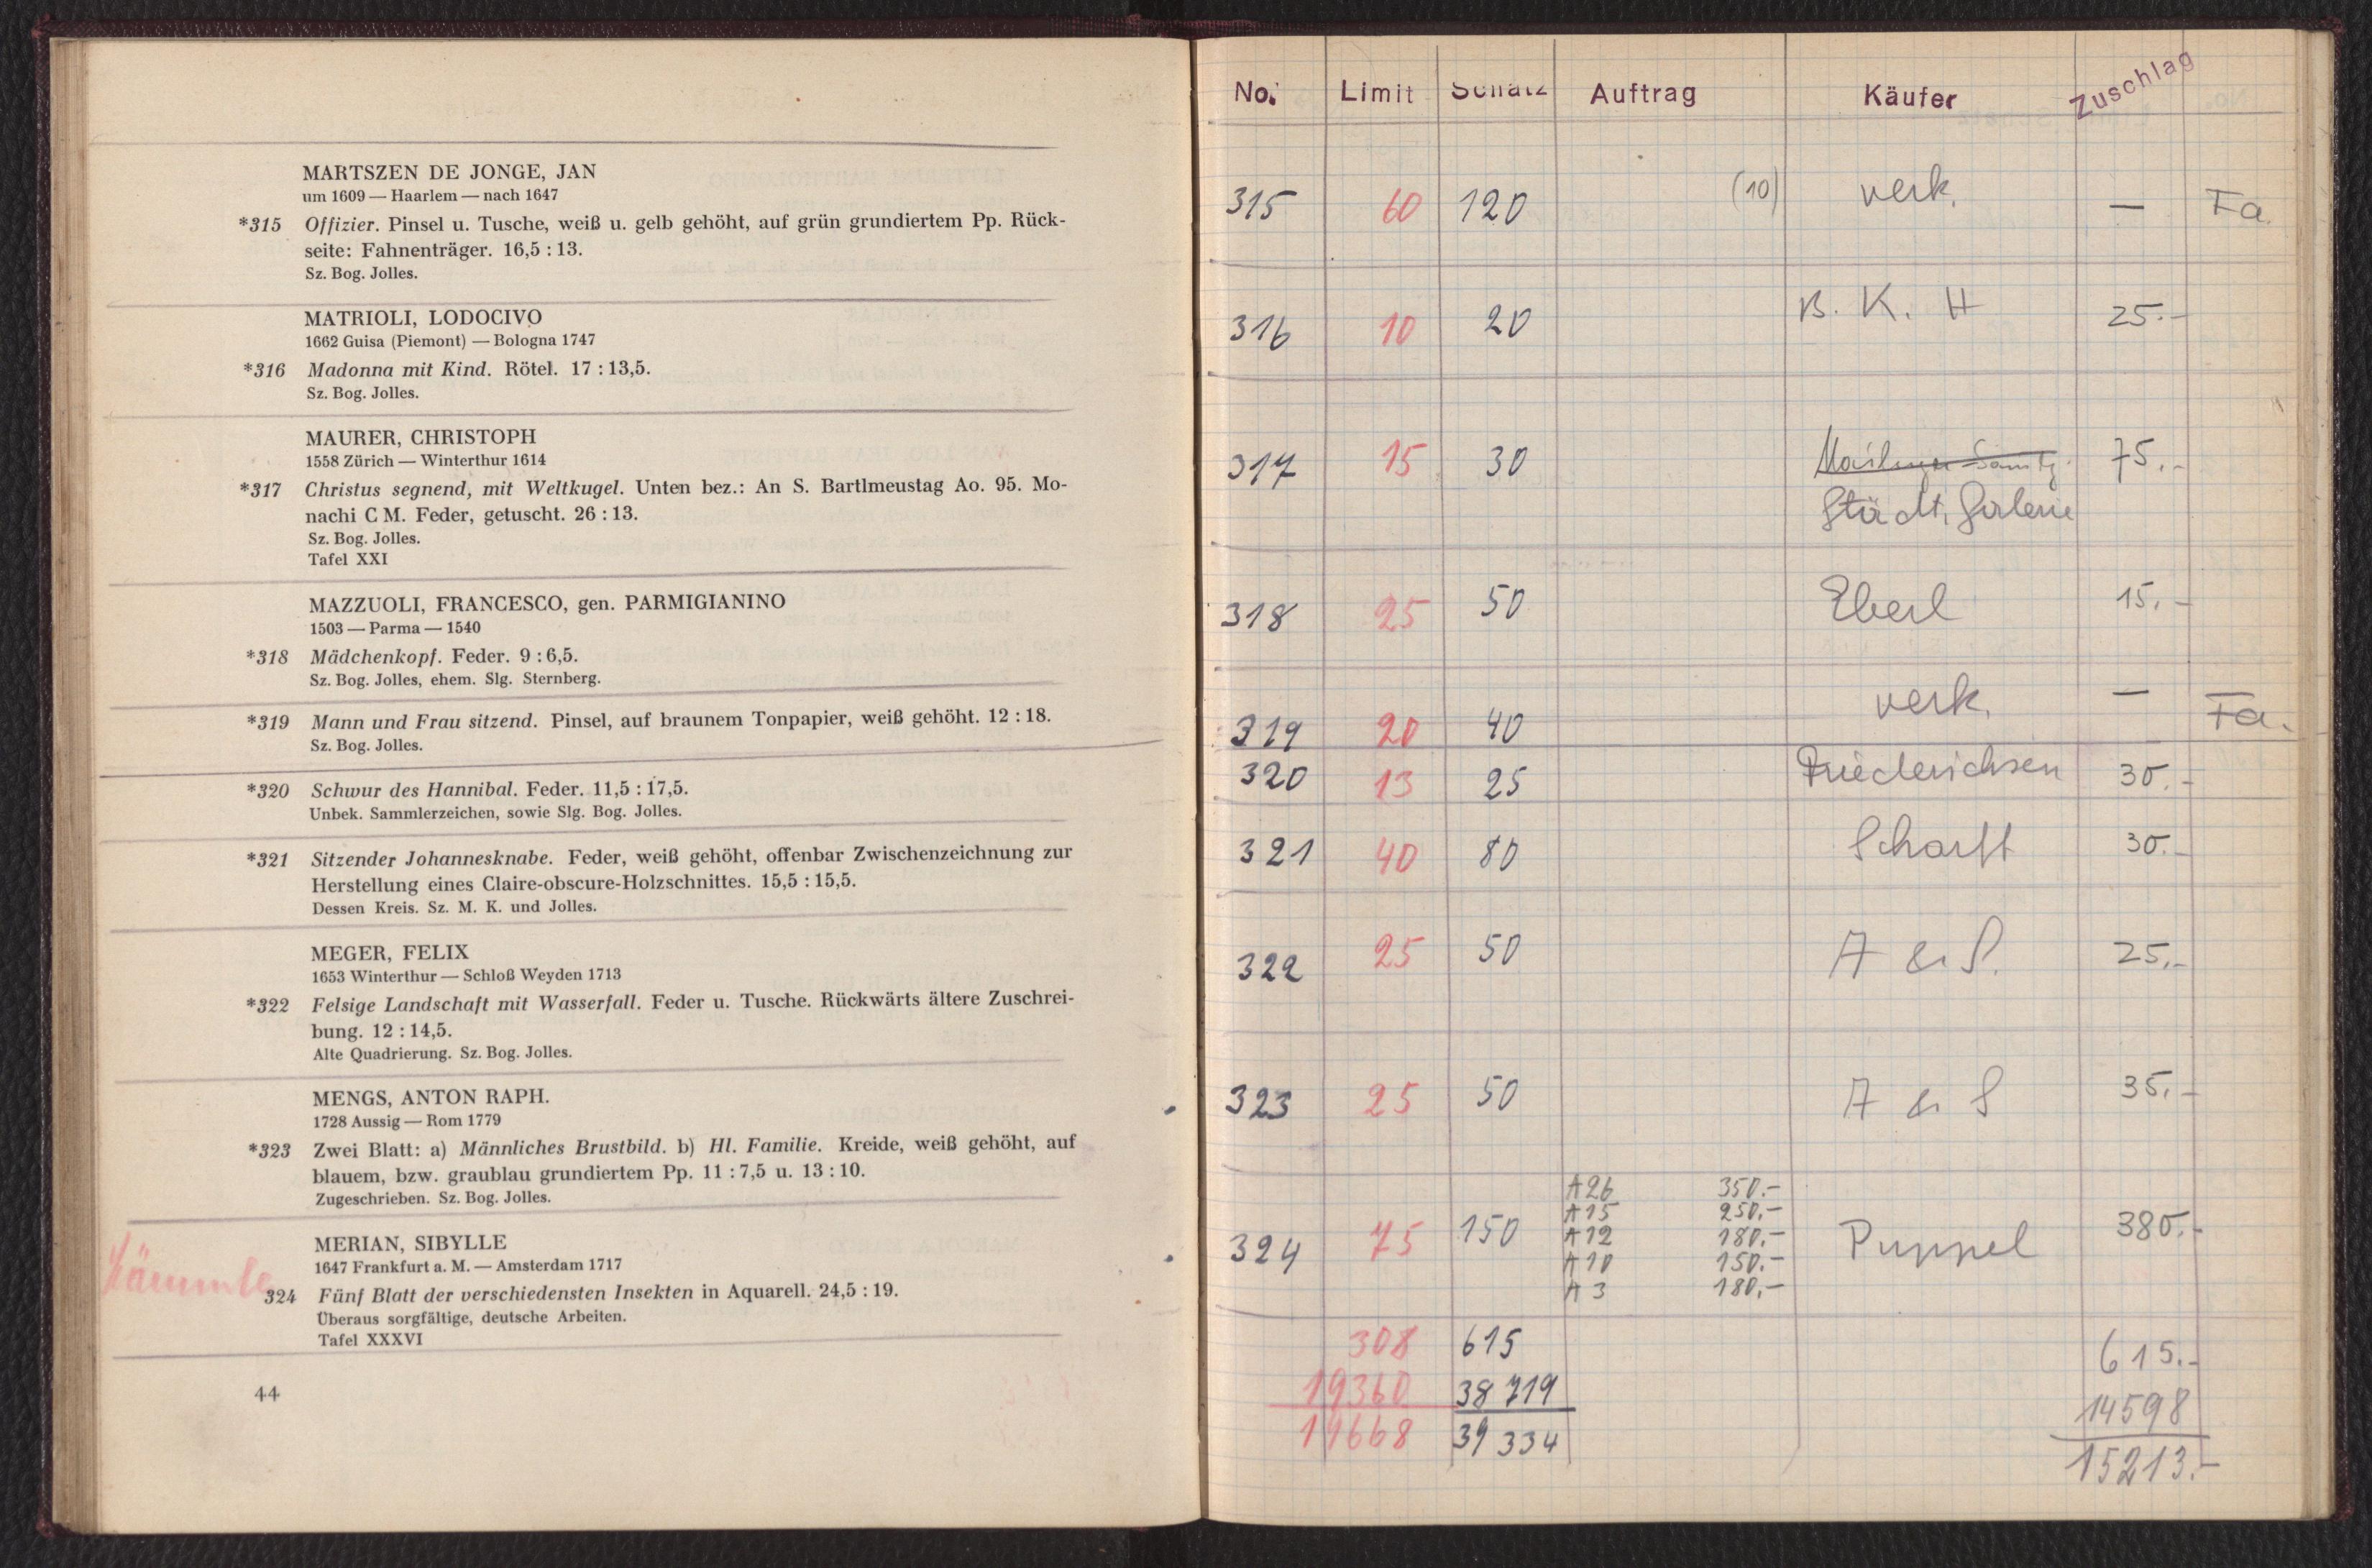 MARTSZEN DE JONGE, JAN
um 1609 — Haarlem — nach 1647
*315 Offizier. Pinsel u. Tusche, weiß u. gelb gehöht, auf grün grundiertem Pp. Rück-
seite: Fahnenträger. 16,5 : 13.
Sz. Bog. Jolles.
MATRIOLI, LODOCIVO
1662 Guisa (Piemont) — Bologna 1747
*316 Madonna mit Kind. Rötel. 17 : 13,5.
Sz. Bog. Jolles.
MAURER, CHRISTOPH
1558 Zürich — Winterthur 1614
*317 Christus segnend, mit Weltkugel. Unten bez.: An S. Bartlmeustag Ao. 95. Mo-
nachi C M. Feder, getuscht. 26 : 13.
Sz. Bog. Jolles.
Tafel XXI
MAZZUOLI, FRANCESCO, gen. PARMIGIANINO
1503 — Parma — 1540
*318 Mädchenkopf. Feder. 9 : 6,5.
Sz. Bog. Jolles, ehem. Slg. Sternberg.
*319 Mann und Frau sitzend. Pinsel, auf braunem Tonpapier, weiß gehöht. 12 : 18.
Sz. Bog. Jolles.
*320 Schwur des Hannibal. Feder. 11,5 : 17,5.
Unbek. Sammlerzeichen, sowie Slg. Bog. Jolles.
*321 Sitzender Johannesknabe. Feder, weiß gehöht, offenbar Zwischenzeichnung zur
Herstellung eines Claire-obscure-Holzschnittes. 15,5 : 15,5.
Dessen Kreis. Sz. M. K. und Jolles.
MEGER, FELIX
1653 Winterthur — Schloß Weyden 1713
*322 Felsige Landschaft mit Wasserfall. Feder u. Tusche. Rückwärts ältere Zuschrei-
bung. 12 : 14,5.
Alte Quadrierung. Sz. Bog. Jolles.
MENGS, ANTON RAPH.
1728 Aussig — Rom 1779
*323 Zwei Blatt: a) Männliches Brustbild. b) Hl. Familie. Kreide, weiß gehöht, auf
blauem, bzw. graublau grundiertem Pp. 11 : 7,5 u. 13 : 10.
Zugeschrieben. Sz. Bog. Jolles.
MERIAN, SIBYLLE
1647 Frankfurt a. M. — Amsterdam 1717
324 Fünf Blatt der verschiedensten Insekten in Aquarell. 24,5 : 19.
Überaus sorgfältige, deutsche Arbeiten.
Tafel XXXVI
44
No. Limit Schätz Auftrag Käufer Zuschlag
315 60 120 (10) verk. — Fa.
316 10 20 B. K. H 25.-
317 15 30 75.-
Städt. Galerie
318 25 50 Eberl 15.-
319 20 40 verk. — Fa.
320 13 25 Friederichsen 30.-
321 40 80 Scharff 30.-
322 25 50 A & S. 25.-
323 25 50 A & S 35.-
A 26 350.-
A 15 250.-
324 75 150 A 12 180.- Puppel 380.-
A 10 150.-
A 3 180.-
308 615 615.-
19360 38719 14598
19668 39334 15213.-